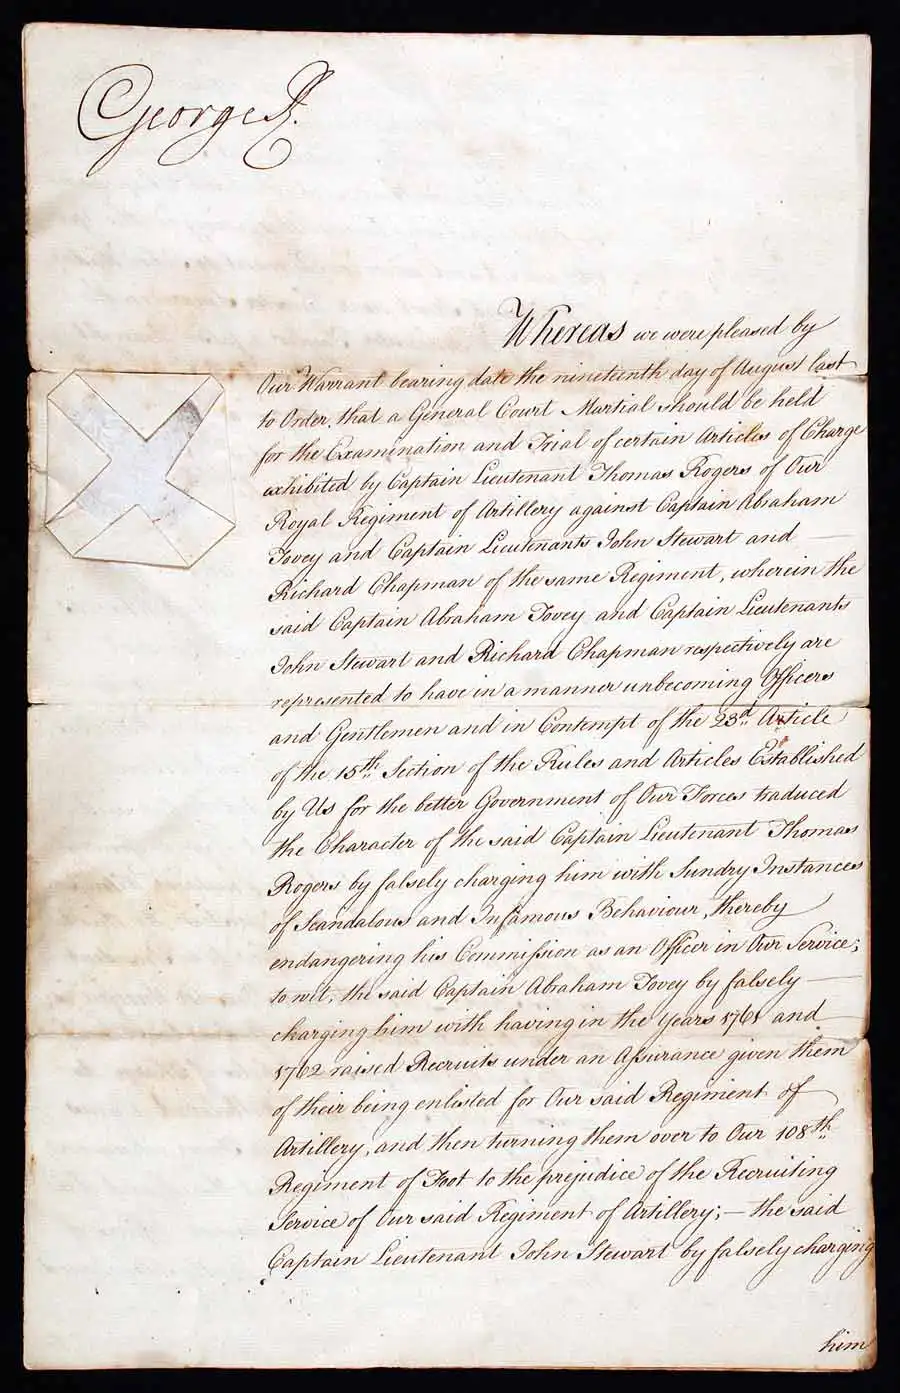 George R.
Whereas we were pleased by
Our Warrant bearing date the nineteenth day of August last
to Order, that a General Court Martial should be held
for the Examination and Trial of certain Articles of Charge
exhibited by Captain Lieutenant Thomas Rogers of Our
Royal Regiment of Artillery against Captain Abraham
Tovey and Captain Lieutenants John Stewart and —
Richard Chapman of the same Regiment, wherein the
said Captain Abraham Tovey and Captain Lieutenants
John Stewart and Richard Chapman respectively are
represented to have in a manner unbecoming Officers
and Gentlemen and in Contempt of the 23d. Article
of the 15th. Section of the Rules and Articles Established
by Us for the better Government of Our Forces traduced
the Character of the said Captain Lieutenant Thomas
Rogers by falsely charging him with Sundry Instances
of Scandalous and Infamous Behaviour, thereby
endangering his Commission as an Officer in Our Service;
to wit, the said Captain Abraham Tovey by falsely —
charging him with having in the Years 1761 and
1762 raised Recruits under an Assurance given them
of their being enlisted for Our said Regiment of
Artillery, and then turning them over to Our 108th.
Regiment of Foot to the prejudice of the Recruiting
Service of Our said Regiment of Artillery; — the said
Captain Lieutenant John Stewart by falsely charging
him